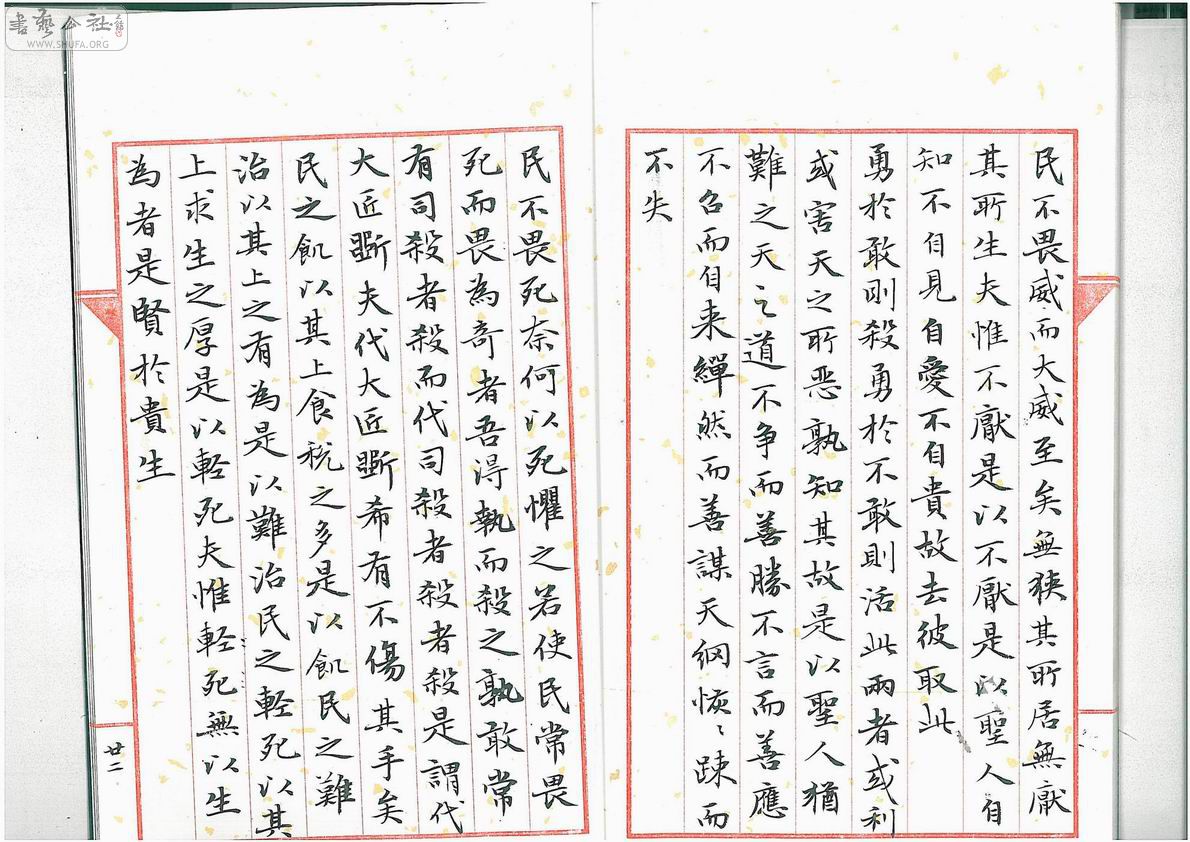 書藝公社
WWW.SHUFA.ORG
民不畏威而大威至矣無狹其所居無厭
其所生夫惟不厭是以不厭是以聖人自
知不自見自愛不自貴故去彼取此
勇於敢則殺勇於不敢則活此兩者或利
或害天之所惡孰知其故是以聖人猶
難之天之道不争而善勝不言而善應
不召而自来繟然而善謀天網恢〻踈而
不失
民不畏死奈何以死懼之若使民常畏
死而畏為奇者吾得執而殺之孰敢常
有司殺者殺而代司殺者殺者殺是謂代
大匠斲夫代大匠斲希有不傷其手矣
民之飢以其上食稅之多是以飢民之難
治以其上之有為是以難治民之輕死以其
上求生之厚是以輕死夫惟輕死無以生
為者是賢於貴生
廿二